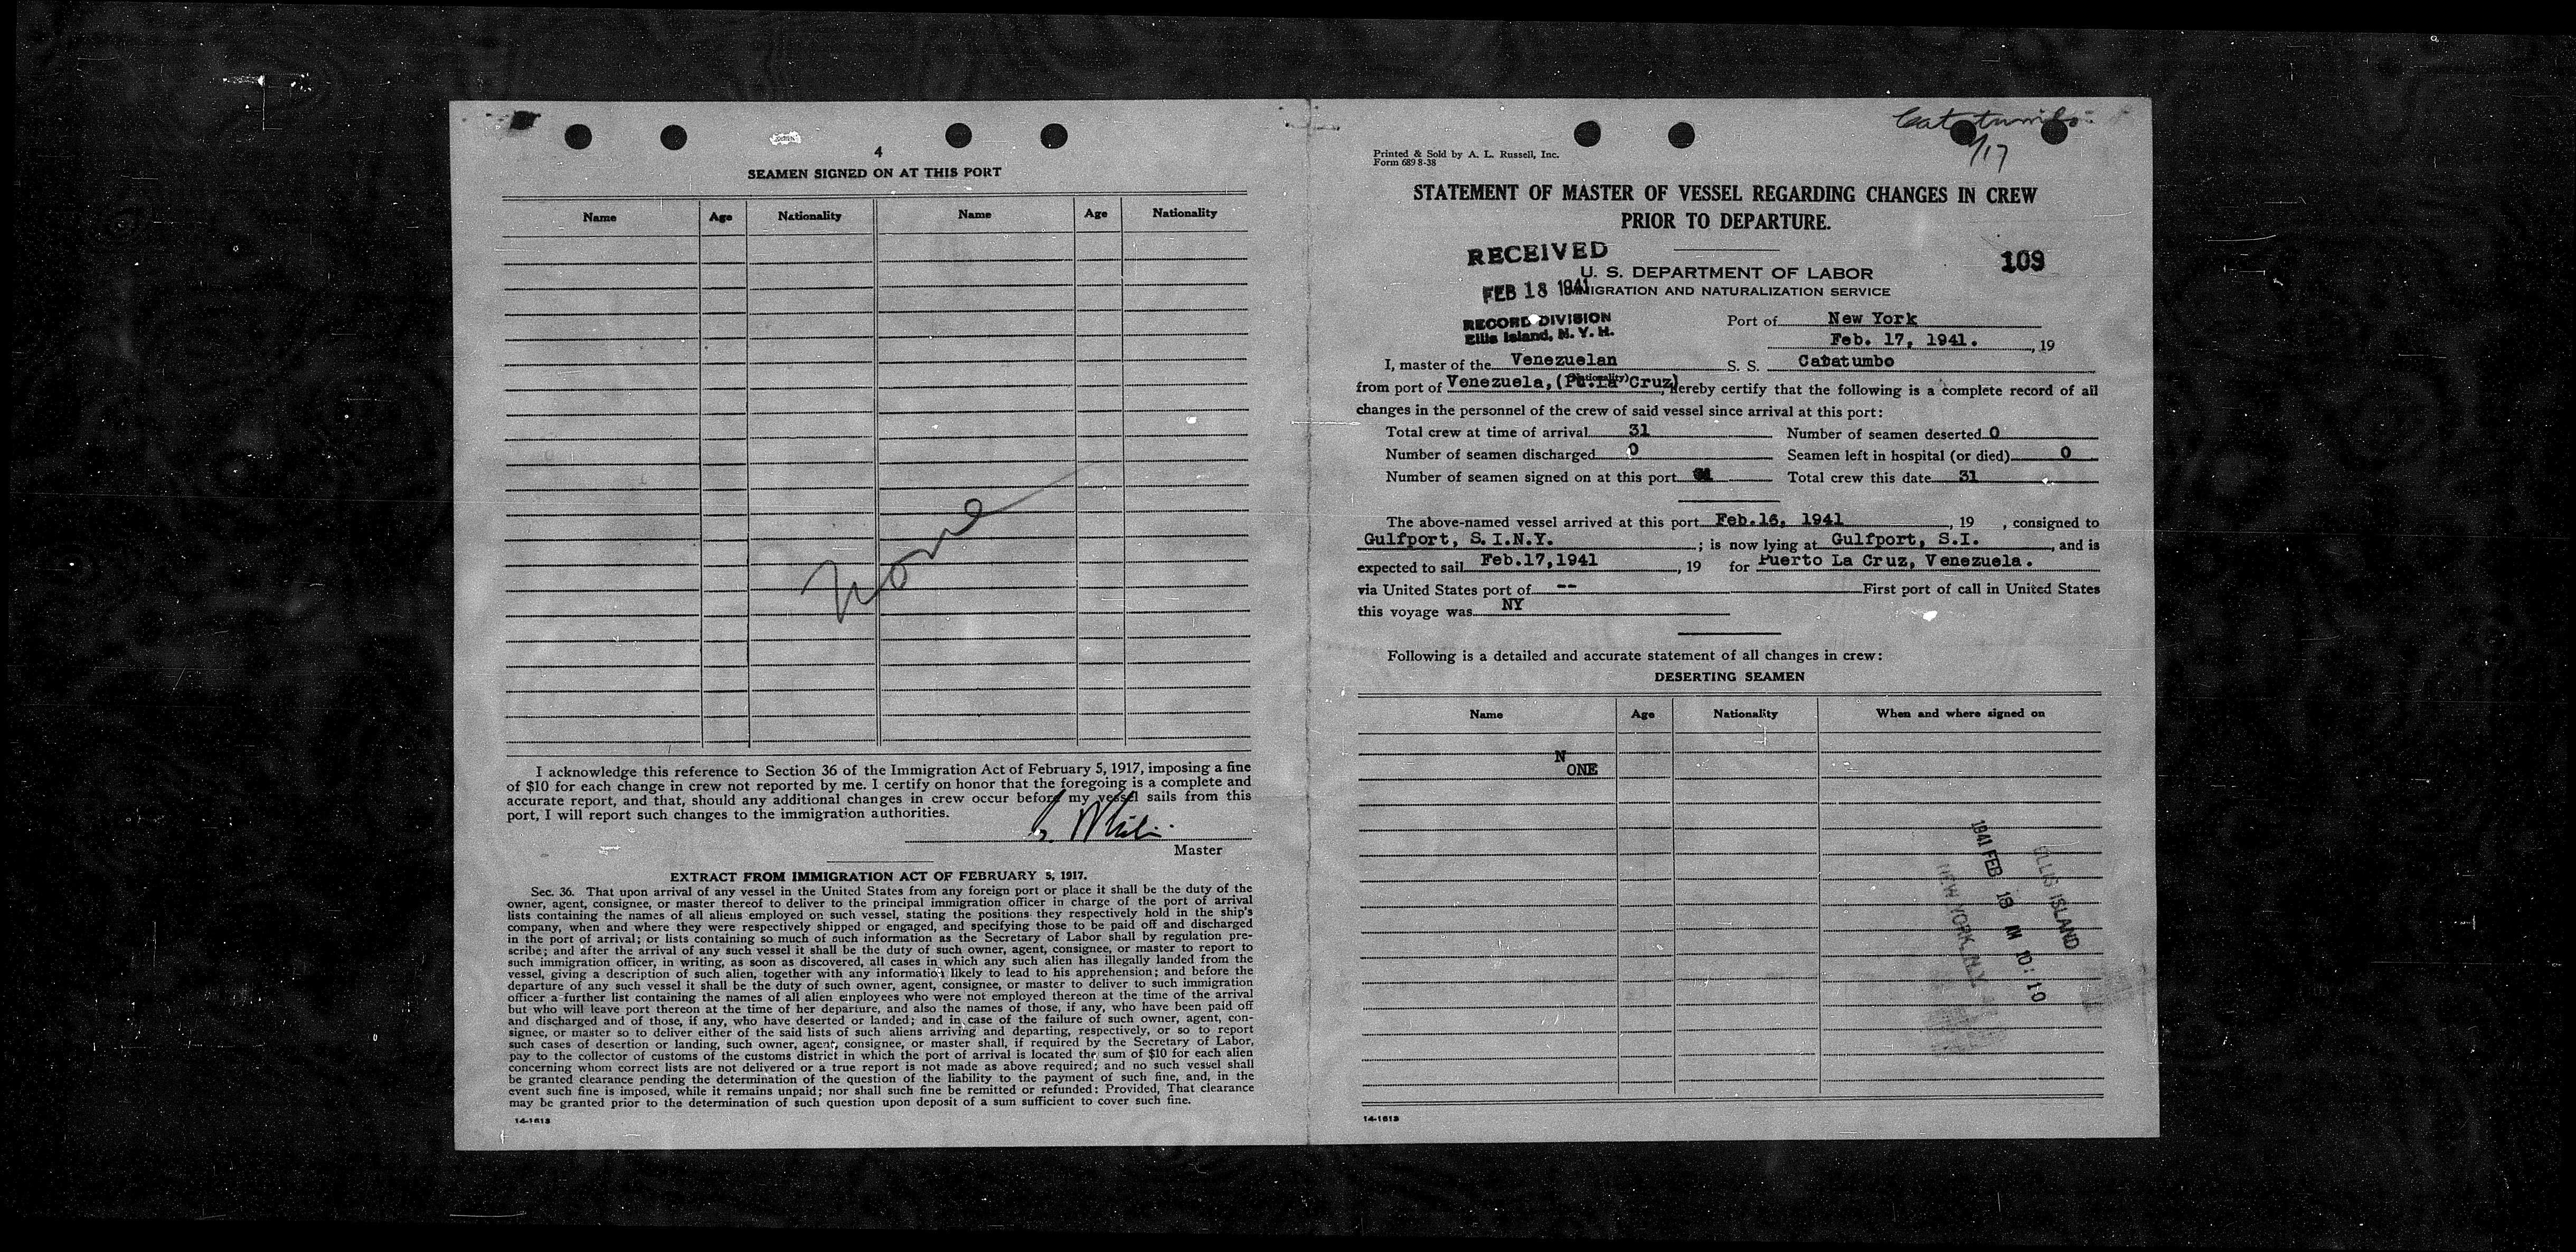 4
SEAMEN SIGNED ON AT THIS PORT
Name Age Nationality Name Age Nationality
None
I acknowledge this reference to Section 36 of the Immigration Act of February 5, 1917, imposing a fine
of $10 for each change in crew not reported by me. I certify on honor that the foregoing is a complete and
accurate report, and that, should any additional changes in crew occur before my vessel sails from this
port, I will report such changes to the immigration authorities.
Master
EXTRACT FROM IMMIGRATION ACT OF FEBRUARY 5, 1917.
Sec. 36. That upon arrival of any vessel in the United States from any foreign port or place it shall be the duty of the
owner, agent, consignee, or master thereof to deliver to the principal immigration officer in charge of the port of arrival
lists containing the names of all aliens employed on such vessel, stating the positions they respectively hold in the ship's
company, when and where they were respectively shipped or engaged, and specifying those to be paid off and discharged
in the port of arrival; or lists containing so much of such information as the Secretary of Labor shall by regulation pre-
scribe; and after the arrival of any such vessel it shall be the duty of such owner, agent, consignee, or master to report to
such immigration officer, in writing, as soon as discovered, all cases in which any such alien has illegally landed from the
vessel, giving a description of such alien, together with any information likely to lead to his apprehension; and before the
departure of any such vessel it shall be the duty of such owner, agent, consignee, or master to deliver to such immigration
officer a further list containing the names of all alien employees who were not employed thereon at the time of the arrival
but who will leave port thereon at the time of her departure, and also the names of those, if any, who have been paid off
and discharged and of those, if any, who have deserted or landed; and in case of the failure of such owner, agent, con-
signee, or master so to deliver either of the said lists of such aliens arriving and departing, respectively, or so to report
such cases of desertion or landing, such owner, agent, consignee, or master shall, if required by the Secretary of Labor,
pay to the collector of customs of the customs district in which the port of arrival is located the sum of $10 for each alien
concerning whom correct lists are not delivered or a true report is not made as above required; and no such vessel shall
be granted clearance pending the determination of the question of the liability to the payment of such fine, and, in the
event such fine is imposed, while it remains unpaid; nor shall such fine be remitted or refunded: Provided, That clearance
may be granted prior to the determination of such question upon deposit of a sum sufficient to cover such fine.
14-1613
Catatumbo
2/17
Printed & Sold by A. L. Russell, Inc.
Form 689 8-38
STATEMENT OF MASTER OF VESSEL REGARDING CHANGES IN CREW
PRIOR TO DEPARTURE.
RECEIVED
109
U. S. DEPARTMENT OF LABOR
FEB 18 1941
IMMIGRATION AND NATURALIZATION SERVICE
RECORD DIVISION
Ellis Island, N. Y. H.
Port of New York
Feb. 17, 1941. , 19
I, master of the Venezuelan S. S. Catatumbo
(Nationality)
from port of Venezuela, (Pt. La Cruz), hereby certify that the following is a complete record of all
changes in the personnel of the crew of said vessel since arrival at this port:
Total crew at time of arrival 31 Number of seamen deserted 0
Number of seamen discharged 0 Seamen left in hospital (or died) 0
Number of seamen signed on at this port Total crew this date 31
The above-named vessel arrived at this port Feb.16, 1941 , 19 , consigned to
Gulfport, S.I.N.Y. ; is now lying at Gulfport, S.I. , and is
expected to sail Feb.17,1941 , 19 for Puerto La Cruz, Venezuela.
via United States port of -- First port of call in United States
this voyage was NY
Following is a detailed and accurate statement of all changes in crew:
DESERTING SEAMEN
Name Age Nationality When and where signed on
N
ONE
ELLIS ISLAND
1941 FEB 18 AM 10:10
NEW YORK, N.Y.
14-1613